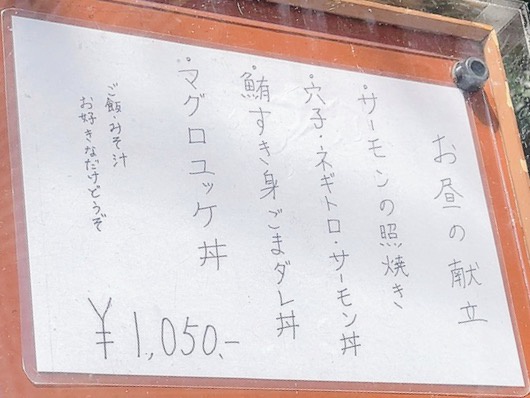 お昼の献立
・サーモンの照焼き
・穴子・ネギトロ・サーモン丼
・鮪すき身ごまダレ丼
・マグロユッケ丼
ご飯・みそ汁
お好きなだけどうぞ
¥1,050.-